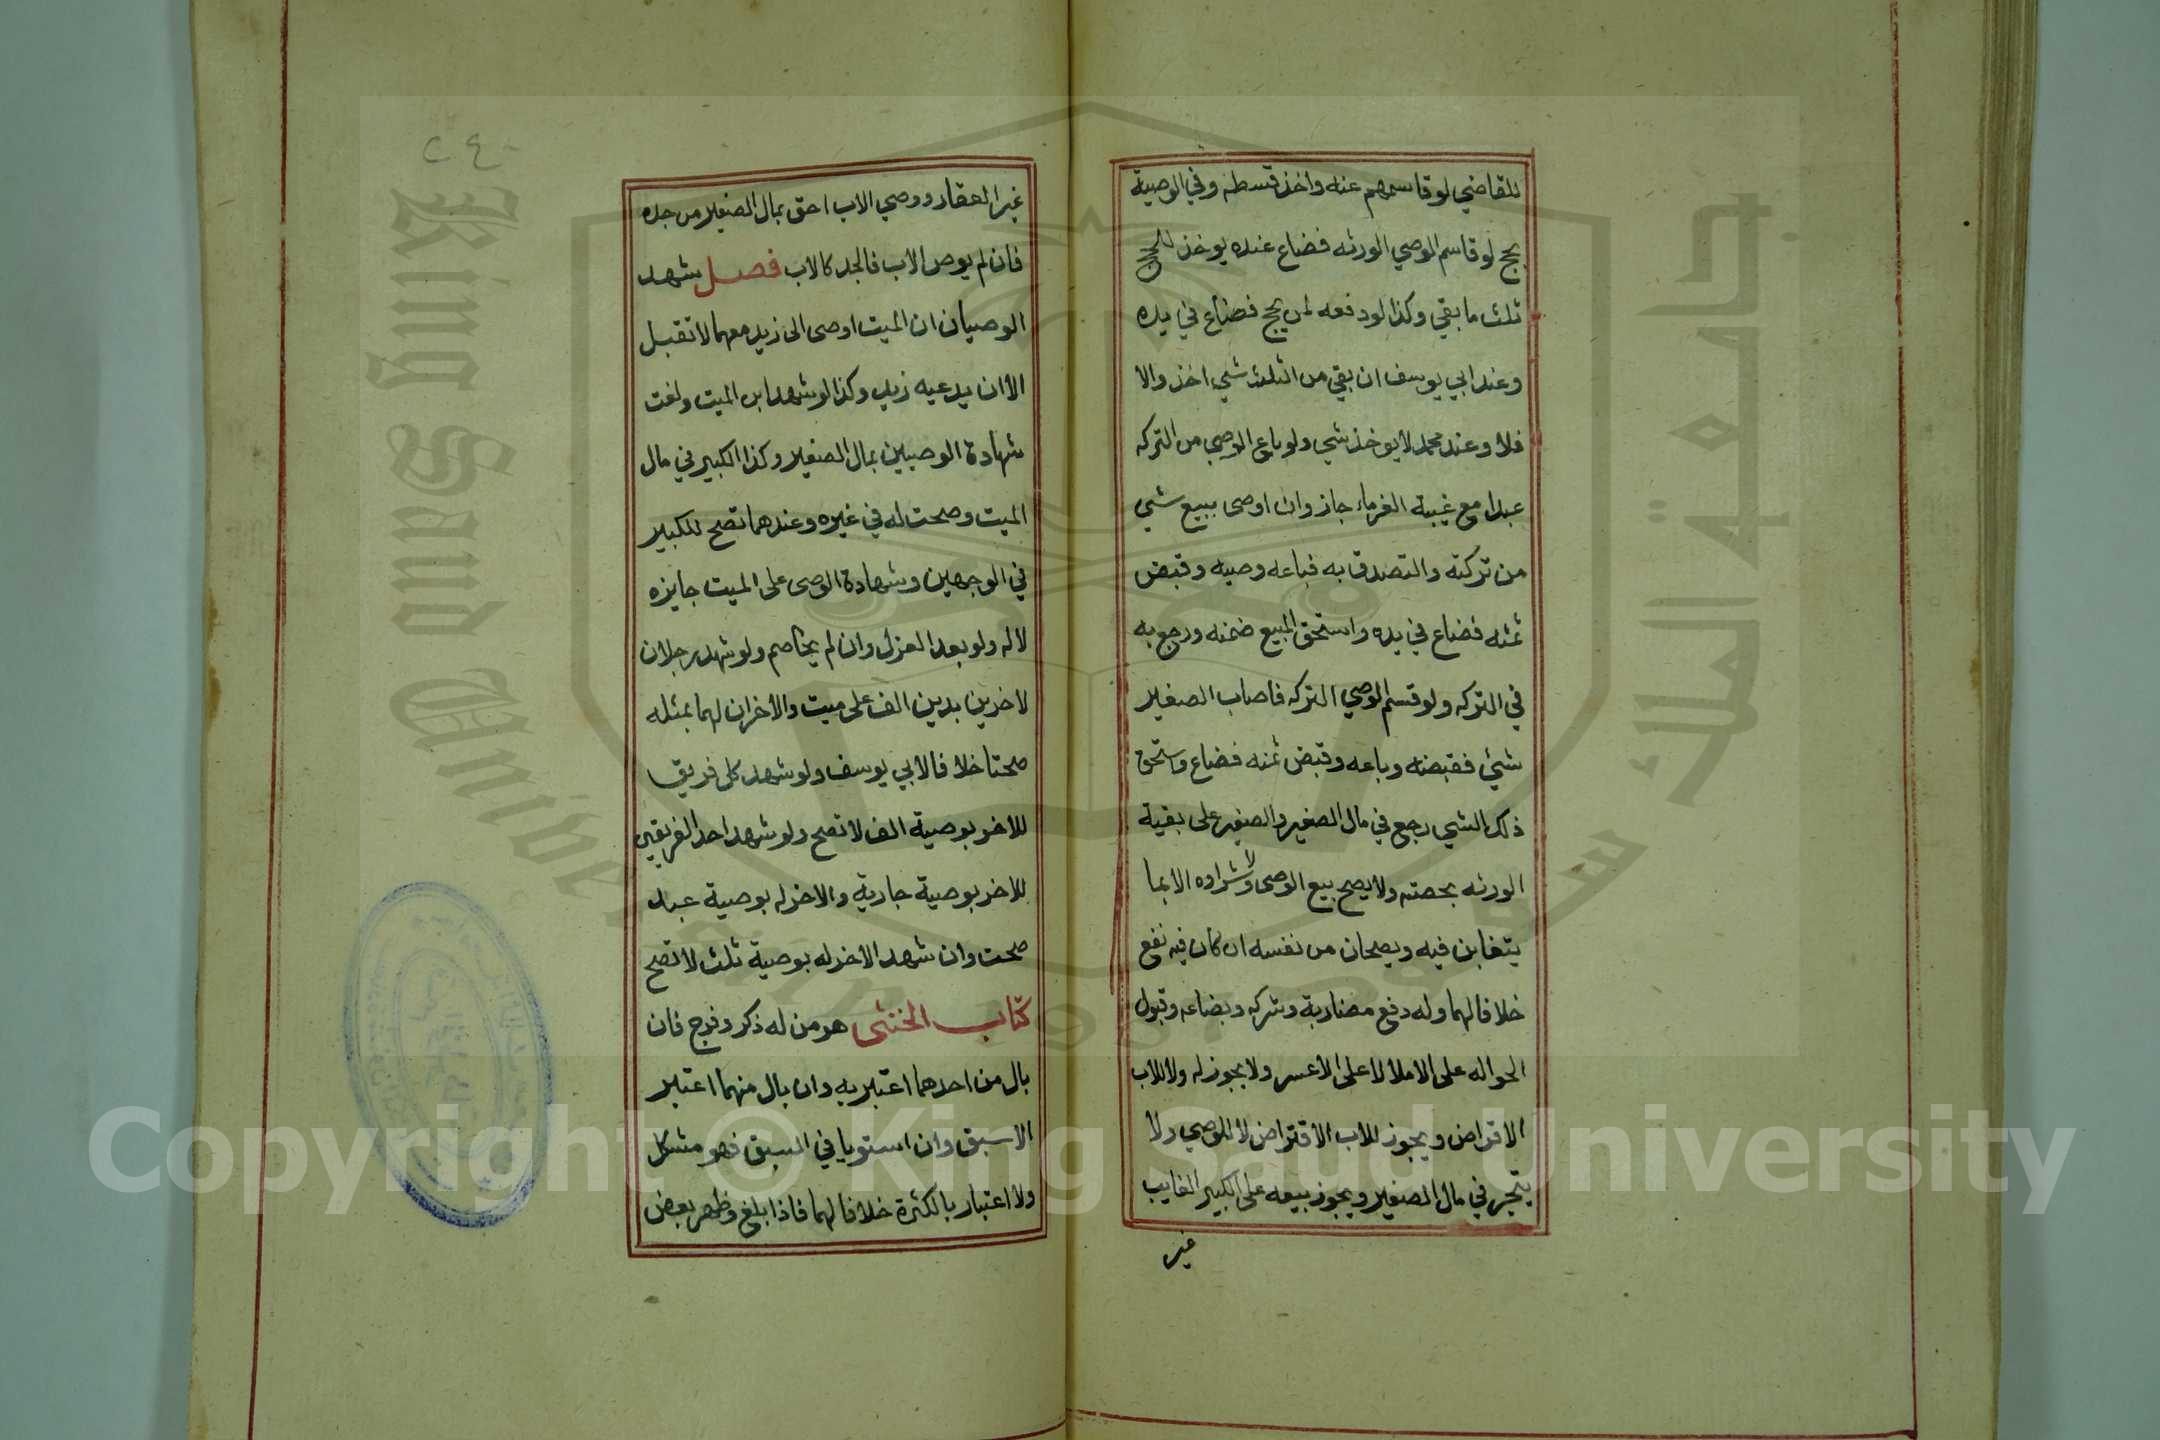 للقاضي لو قاسمهم عنه واخذ قسطه وفي الوصية
بحج لو قاسم الوصي الورثه فضاع عنده يوخذ للحج
ثلث ما بقي وكذا لو دفعه لمن يحج فضاع في يده
وعند ابي يوسف ان بقي من الثلث شي اخذ والا
فلا وعند محمد لا يوخذ شي ولو باع الوصي من التركه
عبدا مع غيبة الغرماء جاز وان اوصى ببيع شي
من تركته والتصدق به فباعه وصيه وقبض
ثمنه فضاع في يده واستحق المبيع ضمنه ورجع به
في التركه ولو قسم الوصي التركه فاصاب الصغير
شئ فقبضه وباعه وقبض ثمنه فضاع واستحق
ذلك الشي رجع في مال الصغير والصغير على بقية
الورثه بحصته ولا يصح بيع الوصى ولا شراوه الا بما
يتغابن فيه ويصحان من نفسه ان كان فيه نفع
خلافا لهما وله دفع مضاربة وشركه وبضاعه وقبول
الحواله على الاملا لا على الاعسر ولا يجوز له ولا للاب
الاقراض ويجوز للاب الاقتراض لا للوصي ولا
يتجر في مال الصغير ويجوز بيعه على الكبير الغايب
غير
٢٤٠
غير العقار ووصي الاب احق بمال الصغير من جده
فان لم يوص الاب فالجد كالاب فصل شهد
الوصيان ان الميت اوصى الى زيد معهما لا تقبل
الا ان يدعيه زيد وكذا لو شهد ابن الميت ولغت
شهادة الوصيين بمال الصغير وكذا الكبير في مال
الميت وصحت له في غيره وعندهما تصح للكبير
في الوجهين وشهادة الوصى على الميت جايزه
لا له ولو بعد العزل وان لم يخاصم ولو شهد رجلان
لاخرين بدين الف على ميت والاخران لهما بمثله
صحتا خلافا لابي يوسف ولو شهد كل فريق
للاخر بوصية الف لا تصح ولو شهد احد الفريقين
للاخر بوصية جارية والاخر له بوصية عبد
صحت وان شهد الاخر له بوصية ثلث لا تصح
كتاب الخنثى هو من له ذكر وفرج فان
بال من احدهما اعتبر به وان بال منهما اعتبر
الاسبق وان استويا في السبق فهو مشكل
ولا اعتبار بالكثرة خلافا لهما فاذا بلغ وظهر بعض
جامعة الملك سعود
King Saud University
1957
Copyright © King Saud University